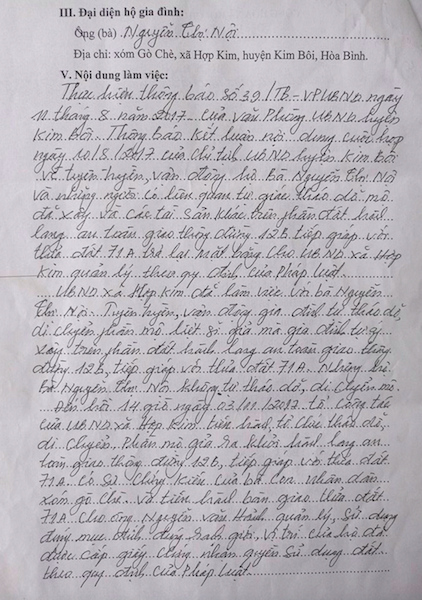 III. Đại diện hộ gia đình:
Ông (bà) Nguyễn Thị Nội
Địa chỉ: xóm Gò Chè, xã Hợp Kim, huyện Kim Bôi, Hòa Bình.
V. Nội dung làm việc:
Thực hiện thông báo số 39/TB-VPUBND ngày
11 tháng 8 năm 2017 của Văn Phòng UBND huyện
Kim Bôi. Thông báo Kết luận nội dung cuộc họp
ngày 10/8/2017 của Chủ tịch UBND huyện Kim Bôi
về tuyên truyền, vận động hộ Bà Nguyễn Thị Nội
và những người có liên quan tự giác tháo dỡ mộ
đã xây và các tài sản khác trên phần đất hành
lang an toàn giao thông đường 12B tiếp giáp với
thửa đất 71A trả lại mặt bằng cho UBND xã Hợp
Kim quản lý theo quy định của Pháp luật
UBND xã Hợp Kim đã làm việc với bà Nguyễn
Thị Nội. Tuyên truyền, vận động gia đình tự tháo dỡ,
di chuyển phần mộ liệt sĩ giả mà gia đình tự ý
xây trên phần đất hành lang an toàn giao thông
đường 12B, tiếp giáp với thửa đất 71A. Nhưng hộ
Bà Nguyễn Thị Nội không tự tháo dỡ, di chuyển mộ
Đến hồi 14 giờ ngày 03/01/ tổ công tác
của UBND xã Hợp Kim tiến hành, tổ chức tháo dỡ,
di chuyển, Phần mộ giả ra khỏi hành lang an
toàn giao thông đường 12B, tiếp giáp với thửa đất
71A có sự chứng kiến của bà con nhân dân
xóm gò Chè. Và tiến hành bàn giao thửa đất
71A cho ông Nguyễn Văn Hành quản lý, sử dụng
đúng mục đích, đúng ranh giới, vị trí của hộ đã
được cấp giấy chứng nhận quyền sử dụng đất
theo quy định của Pháp luật